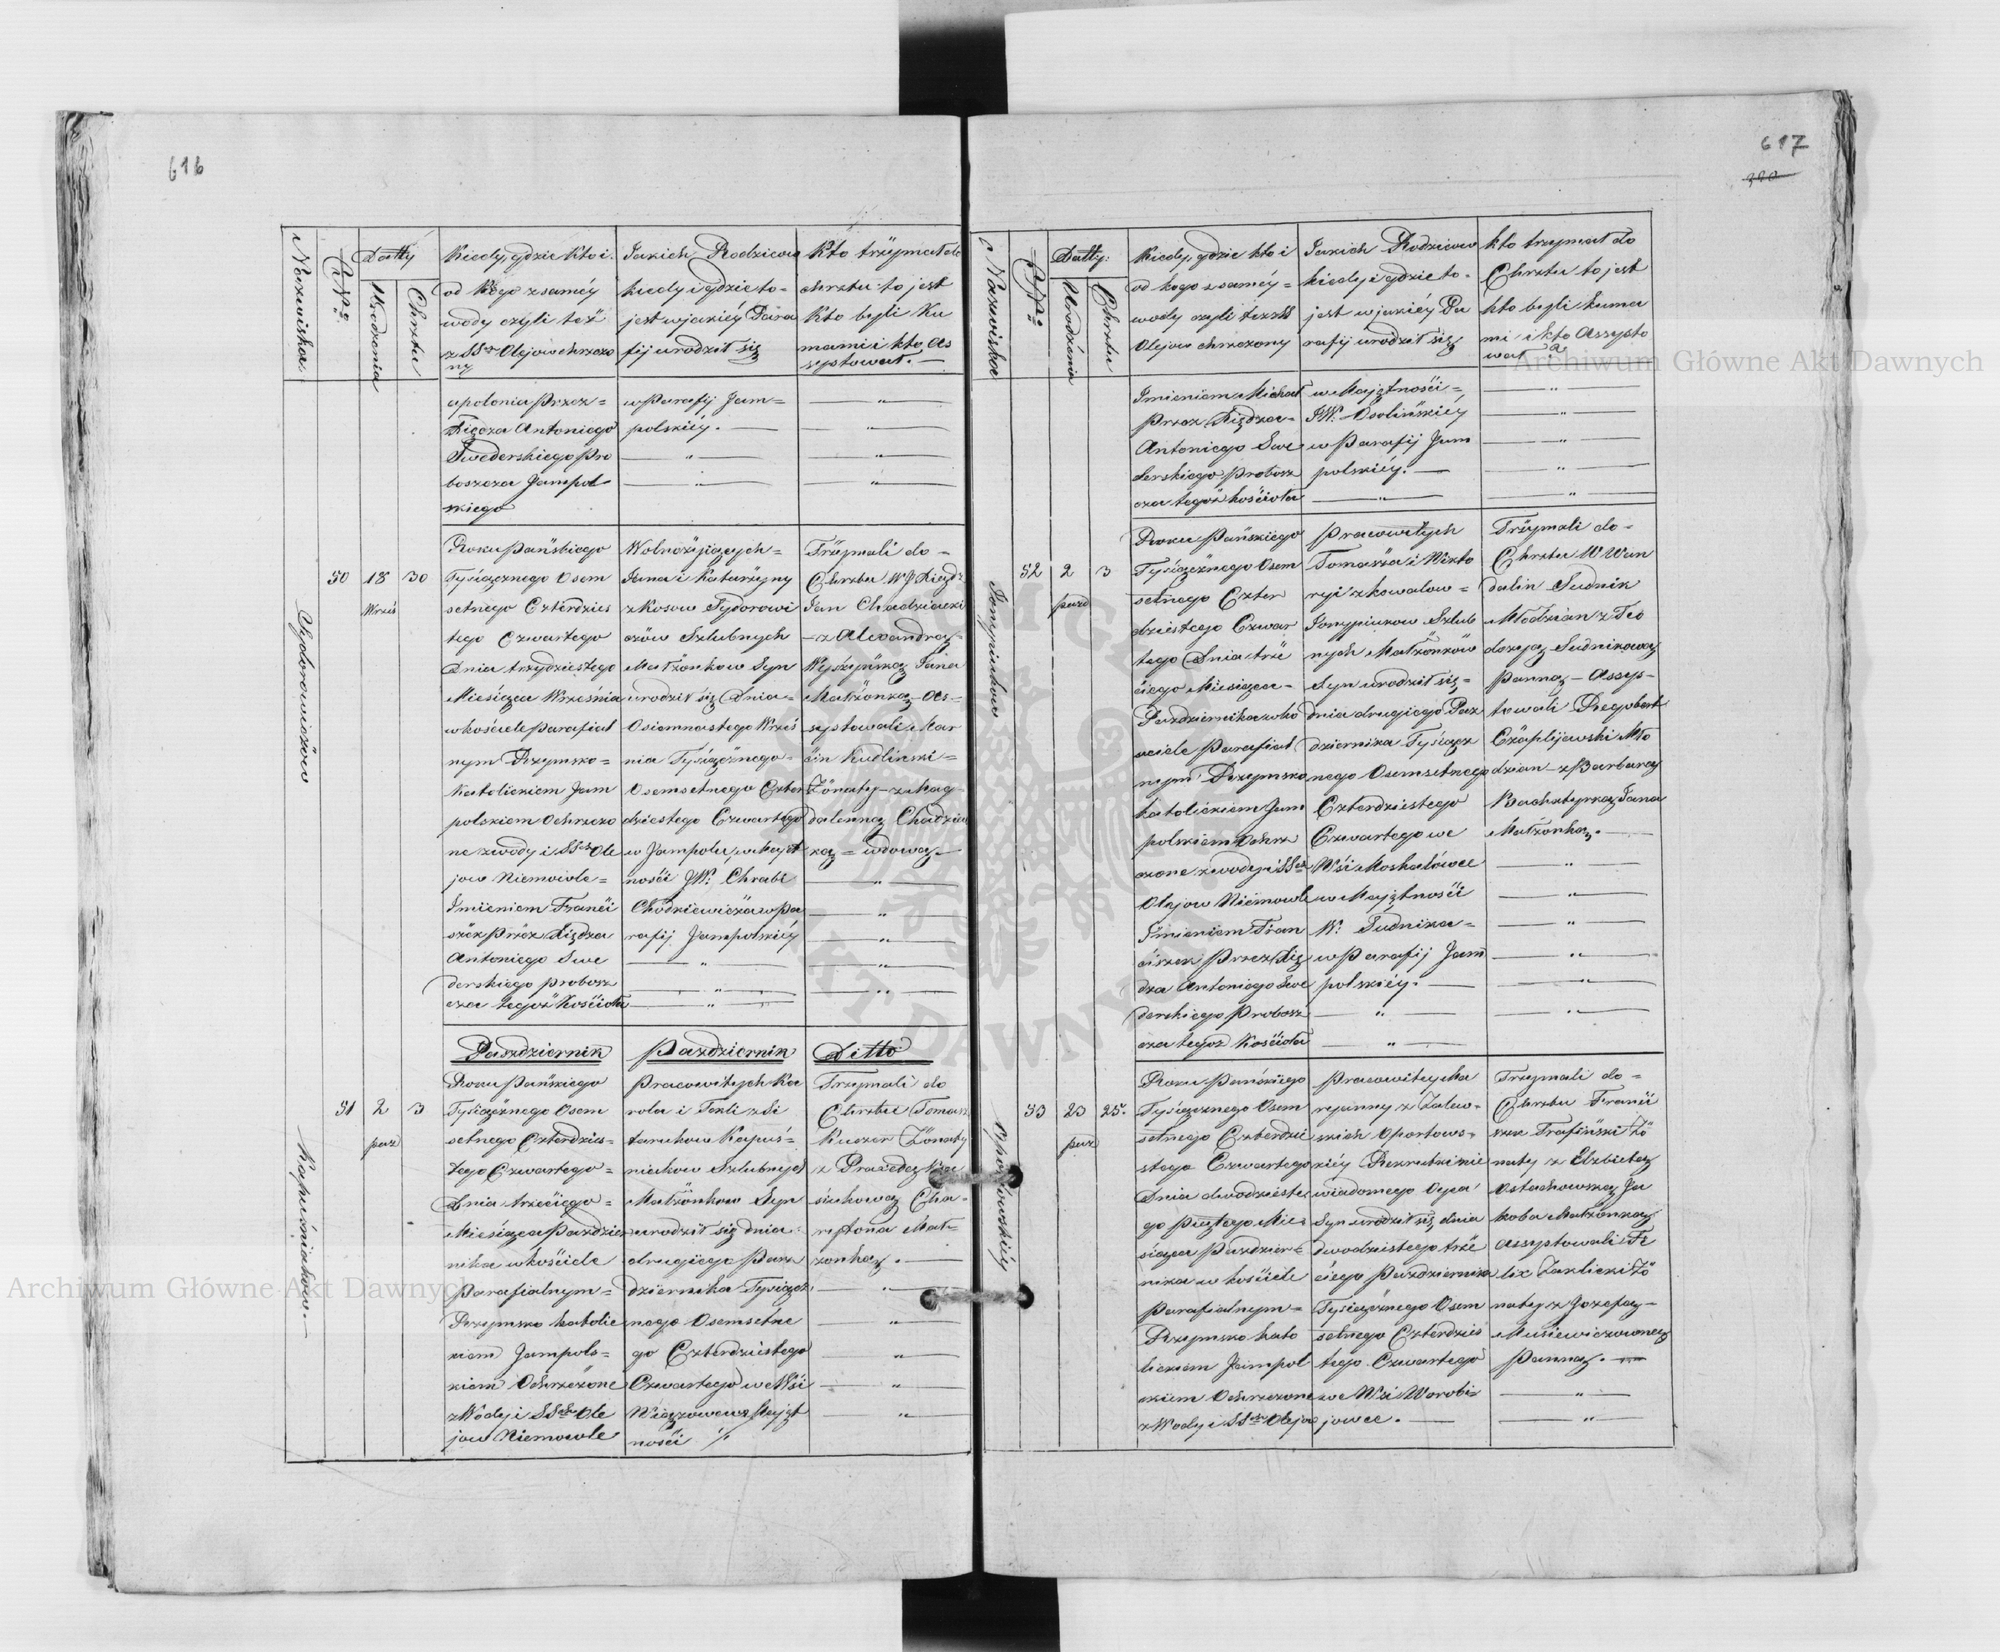 616
Nazwiska
Datty
Urodzenia
Chrztu
Kiedy, gdzie kto i
od kogo z saméy
wody czyli też
z SSch Olejow chrzczo
ny
Jakich Rodzicow
kiedy i gdzie to-
jest w jakiéy Para
fij urodził się
Kto trzymał do
chrztu to jest
Kto byli Ku
mami i kto As
systował. —
apolonia przez =
Xiędza Antoniego
Swederskiego Pro
boszcza Jampol
skiego
w Parafij Jam=
polskiéy. —
Sydorowiczów
50
18
Wrześ
30
Roku Pańskiego
Tysiącznego Osem
setnego Czterdzies
tego Czwartego
Dnia trzydziestego
Miesiąca Września
w kościele parafial
nym Rzymsko =
Katolickiem Jam
polskiem Ochrzczo
ne z wody i SSch Ole
jow Niemowle =
Imieniem Franći
szek przez Xiędza
Antoniego Swe
derskiego probosz
cza tegoż Kościoła
Wolnożyjących =
Jana i Katarzyny
z Kosow Sydorowi
czów Szlubnych
Małżonkow Syn
urodził się Dnia =
Osiemnastego Wrześ
nia Tysiącznego =
Osemsetnego Czter
dziestego Czwartego
w Jampolu, w Mająt
ności JW. Chrabi
Chodkiewicza w Pa
rafij Jampolskiéy
Trzymali do =
Chrztu
Jan
z Alexandrą
Jana
Małżonką — As =
systowali Mar
ćin Kudlinski =
Żonaty — z Mag
daleną
= wdową.—
Pazdziernik
Pazdziernik
Ditto
Kapuśniakow.—
51
2
paz
3
Roku Pańskiego
Tysiącznego Osem
setnego Czterdzies=
tego Czwartego =
Dnia trzećiego =
Miesiąca Paździer
nika w kościele
parafialnym =
Rzymsko katolic
kiem Jampols=
kiem Ochrzczone
z Wody i SSch Ole
jow Niemowle
Pracowitych Ka
rola i Tekli z Si
taruków Kapuś-
niakow Szlubnych
Małżonkow Syn
urodził się dnia
drugiego Paz
dziernika Tysiącz
nego Osemsetne
go Czterdziestego
Czwartego we Wśi
Wiązowcu w Mająt
nośći
Trzymali do
Chrztu Tomasz
Kuszer Żonaty
z Praxedą
Cha-
rytona Mał=
żonką. —
617
Nazwiska
Datty:
Urodzenia
Chrztu
Kiedy, gdzie kto i
od kogo z saméy =
wody czyli też z SS
Olejow chrzczony
Jakich Rodzicow
kiedy i gdzie to-
jest w jakiéy Pa
rafij urodził się
kto trzymał do
Chrztu to jest
kto byli kuma
mi i kto Assysto
wał
Imieniem Michał
przez Xiędza =
Antoniego Swe
derskiego Probosz
cza tegoż kościoła
w Majętnośći =
JW. Osolińskiéy
w Parafij Jam
polskiéy. —
52
2
pazd
3
Roku Pańskiego
Tysiącznego Osem
setnego Czter
dziestego Czwar
tego Dnia trze
ćiego Miesiąca =
Pazdziernika w ko
sciele parafial
nym Rzymsko
katolickiem Jam
polskiem Ochrz
czone z wody i SSch
Olejow Niemowle
Imieniem Fran
ćiszek przez Xię
dza Antoniego Swe
derskiego Probosz
cza tegoż Kościoła
Pracowitych
Tomasza i Wikto
ryi z kowalow =
Szlub
nych Małżonków
Syn urodził się =
dnia drugiego Paz
dziernika Tysiącz
nego Osemsetnego
Czterdziestego
Czwartego we
Wśi Moskalówce
w Majętnośći
W. Sudnika =
w Parafij Jam
polskiéy. —
Trzymali do =
Chrztu W Wan
dalin Sudnik
Młodzian z Teo
dozyą Sudnikowną
Panną — Assys=
towali Regobert
Czaplijewski Mło
dzian — z Barbarą
Jana
Małżonką. —
Oportowskiéy
53
23
paz
25.
Roku Pańskiego
Tysiącznego Osem
setnego Czterdzie
stego Czwartego
Dnia dwodzieste
go piątego Mie
siąca Pazdzier=
nika w kościele
parafialnym =
Rzymsko kato
lickiem Jampol
skiem Ochrzczone
z Wody i SSch Olejow
Pracowitey Ka
rzyny z Zalew=
skich Oportows=
kiéy Rekrutki nie
wiadomego Oyca
Syn urodził się dnia
dwodziestego trze
ćiego Pazdziernika
Tysiącznego Osem
setnego Czterdzies
tego Czwartego
we Wsi Worobi
jowce. —
Trzymali do =
Chrztu Franći
szek Trafiński Żo
naty z Elżbietą
Ostachowską Ja
koba Małżonką
Assystowali Fe
lix Zaklicki Żo
naty z Jozefą —
Musiewiczowną
Panną. —
Archiwum Główne Akt Dawnych
Archiwum Główne Akt Dawnych